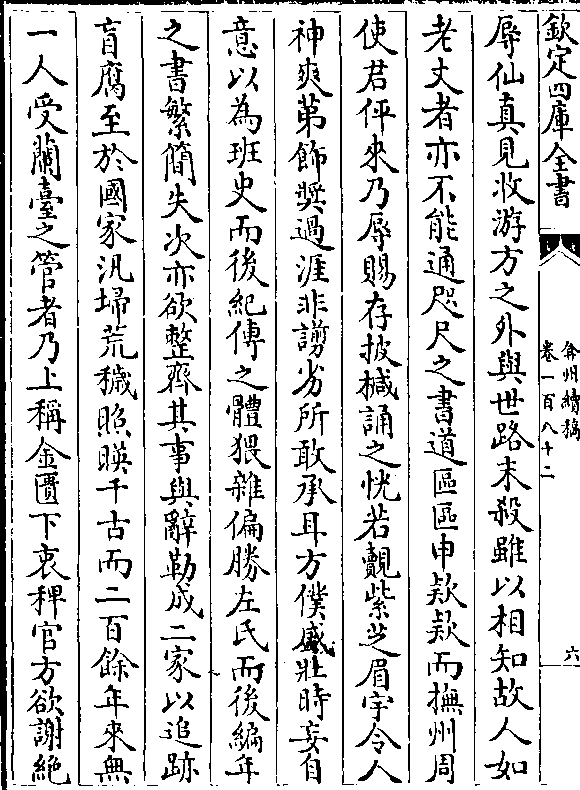 欽定四庫全書
弇州續稿
卷一百八十二
六
辱仙真見收游方之外與世路末殺雖以相知故人如
老丈者亦不能通咫尺之書道區區申欵欵而撫州周
使君伻來乃辱賜存披槭誦之恍若覿紫芝眉宇令人
神爽第飾奬過涯非謭劣所敢承耳方僕盛壯時妄自
意以為班史而後紀傳之體猥雜偏勝左氏而後編年
之書繁簡失次亦欲整齊其事與辭勒成二家以追跡
盲腐至於國家汛埽荒穢照暎千古而二百餘年來無
一人受蘭臺之管者乃上稱金匱下裒稗官方欲謝絶